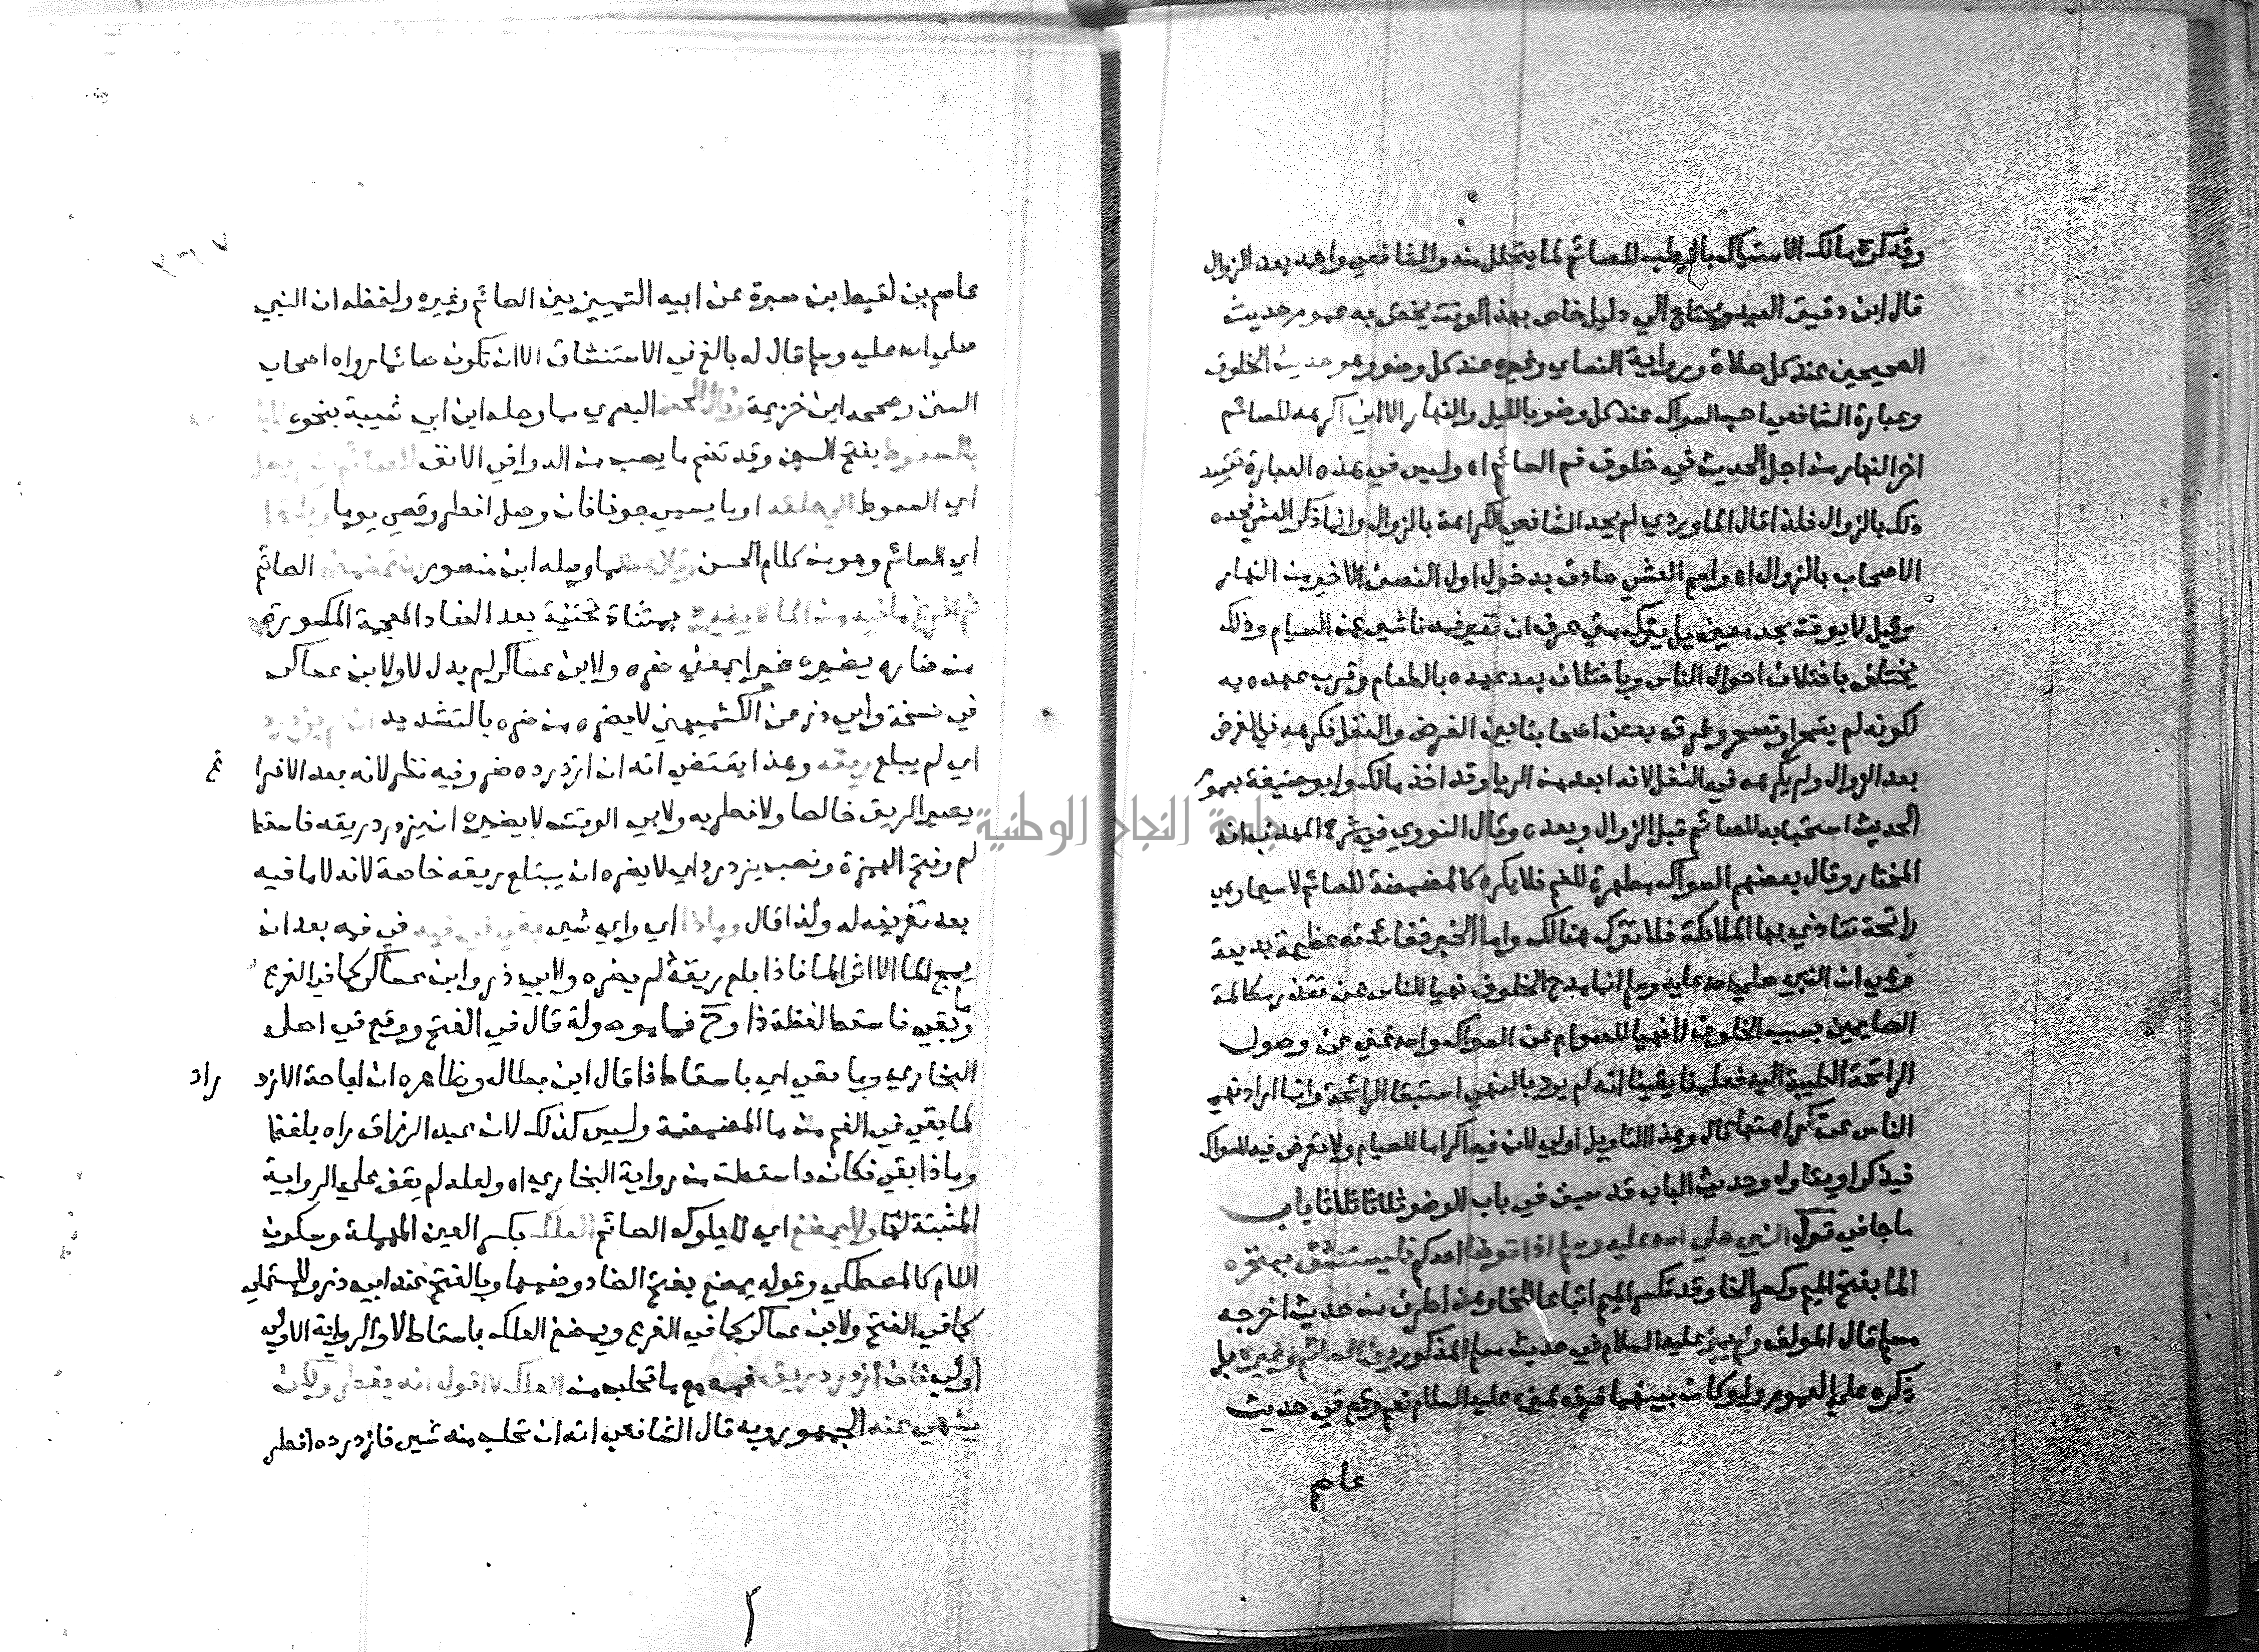 وقد كره مالك الاستياك بالرطب للصائم لما يتحلل منه والشافعي واحمد بعد الزوال
قال ابن دقيق العيد ويحتاج الي دليل خاص بهذا الوقت يخص به عموم حديث
الصحيحين عند كل صلاة ورواية النساي وغيره عند كل وضو وهو حديث الخلوف
وعبارة الشافعي احب السواك عند كل وضو بالليل والنهار الا اني اكرهه للصائم
اخر النهار من اجل الحديث في خلوف فم الصائم اه وليس في هذه العبارة تقييد
ذلك بالزوال فلذا قال الماوردي لم يحد الشافعي الكراهة بالزوال وانما ذكر العشي فحده
الاصحاب بالزوال اه واسم العشي صادق بدخول اول النصف الاخير من النهار
وقيل لا يوقت بحد معين بل يترك متي عرف ان تغير فمه ناشي عن الصيام وذلك
يختلف باختلاف احوال الناس وباختلاف بعد عهده بالطعام وقرب عهده به
لكونه لم يتسحر او تسحر وفرق بعض اصحابنا بين الفرض والنفل فكرهه في الفرض
بعد الزوال ولم يكرهه في النفل لانه ابعد من الريا وقد اخذ مالك وابو حنيفة بعموم
الحديث استحبابه للصائم قبل الزوال وبعده وقال النووي في شرح المهذب انه
المختار وقال بعضهم السواك مطهرة للفم فلا يكره كالمضمضة للصائم لا سيما وهي
رائحة تتاذي بها الملائكة فلا تترك هنالك واما الخبر ففائدته عظيمة بديعة
وهي ان النبي صلي الله عليه وسلم انما مدح الخلوف نهيا للناس عن تقذر مكالمة
الصايمين بسبب الخلوف لا نهيا للصوام عن السواك والله غني عن وصول
الرائحة الطيبة اليه فعلمنا يقينا انه لم يرد بالنهي استبقا الرائحة وانما اراد نهي
الناس عن كراهتها قال وهذا التاويل اولي لان فيه اكراما للصيام ولا تعرض فيه للسواك
فيذكر او يتاول وحديث الباب قد سبق في باب الوضو ثلاثا ثلاثا باب
ما جا في قول النبي صلي الله عليه وسلم اذا توضا احدكم فليستنشق بمنخره
الما بفتح الميم وكسر الخا وقد تكسر الميم اتباعا للخا وهذا طرف من حديث اخرجه
مسلم قال المولف ولم يميز عليه السلام في حديث مسلم المذكور بين الصائم وغيره بل
ذكره علي العموم ولو كان بينهما فرق لميزه عليه السلام نعم وقع في حديث
عاصم
٣٦٧
عاصم بن لقيط بن صبرة عن ابيه التمييز بين الصائم وغيره ولفظه ان النبي
صلي الله عليه وسلم قال له بالغ في الاستنشاق الا ان تكون صائما رواه اصحاب
السنن وصححه ابن خزيمة وقال الحسن البصري مما وصله ابن ابي شيبة بنحوه
بالسعوط بفتح السين وقد تضم ما يصب من الدوا في الانف للصائم ان لم يصل
اي السعوط الي حلقه او ما يسمي جوفا فان وصل افطر وقضي يوما
اي الصائم وهو من كلام الحسن وقال عطا مما وصله ابن منصور ان تمضمض الصائم
ثم افرغ ما فيه من الما لا يضيره بمثناة تحتية بعد الضاد المعجمة المكسورة
من ضاره يضيره ضيرا بمعني ضره ولابن عساكر لم بدل لا ولابن عساكر
في نسخة وابي ذر عن الكشميهني لا يضره من ضره بالتشديد ان لم يزدرد
اي لم يبلع ريقه وهذا يقتضي انه ان ازدرده ضر وفيه نظر لانه بعد الافرا
يصير الريق خالصا ولا فطر به ولابي الوقت لا يضيره ان يزدرد ريقه فاسقط
لم وفتح الهمزة ونصب يزدرد اي لا يضره ان يبتلع ريقه خاصة لانه لا ما فيه
بعد تفريغه له ولذا قال وماذا اي واي شي بقي في فيه في فيه بعد ان
يمج الما الا اثر الما فاذا بلع ريقه لم يضره ولابي ذر وابن عساكر كما في الفرع
وما بقي فاسقط لفظة ذا وح فما موصولة قال في الفتح ووقع في اصل
البخاري وما بقي اي باسقاط ذا قال ابن بطال وظاهره ان اباحة الازد راد
لما بقي في الفم من ما المضمضة وليس كذلك لان عبد الرزاق رواه بلفظ
وماذا بقي فكان ذا سقطت من رواية البخاري اه ولعله لم يقف علي الرواية
المثبتة لها ولا يمضغ اي لا يلوك الصائم العلك بكسر العين المهملة وسكون
اللام كالمصطكي وقوله يمضغ بفتح الضاد وضمها وبالفتح عند ابي ذر وللمستملي
كما في الفتح ولابن عساكر كما في الفرع ويمضغ العلك باسقاط لا والرواية الاولي
اولي فان ازدرد ريق فمه مع ما تحلب من العلك لا اقول انه يفطر ولكن
ينهي عنه الجمهور وبه قال الشافعي انه ان تحلب منه شي فازدرده افطر
جامعة النجاح الوطنية